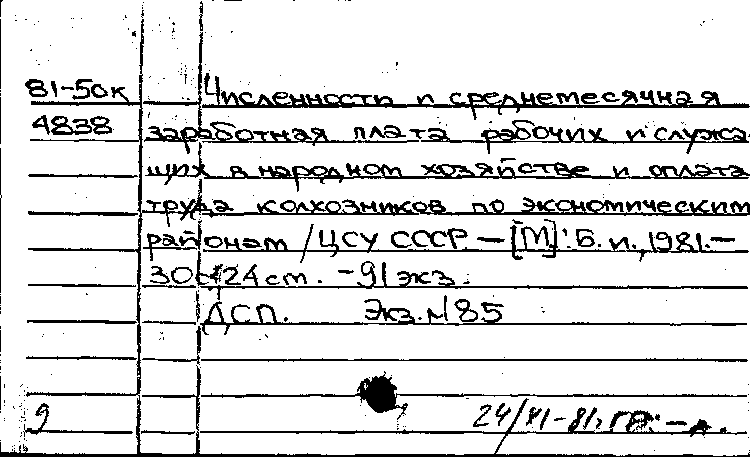 81-50к Численность и среднемесячная
4838 заработная плата рабочих и служа
щих в народном хозяйстве и оплата
труда колхозников по экономическим
районам / ЦСУ СССР. — [М]: Б. и., 1981. —
30с; 24 см. - 91 экз.
ДСП. Экз. № 85
9